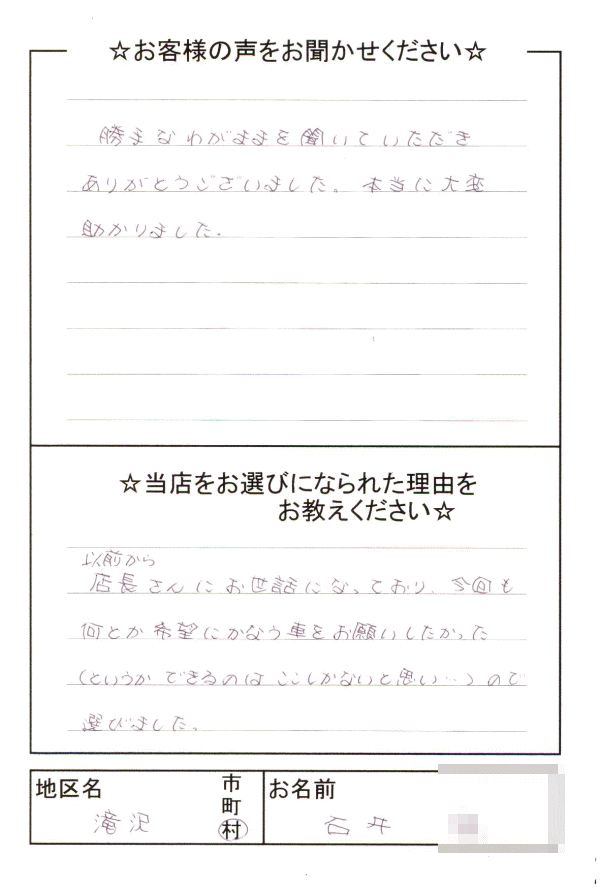 ☆お客様の声をお聞かせください☆
勝手なわがままを聞いていただき
ありがとうございました。本当に大変
助かりました。
☆当店をお選びになられた理由を
お教えください☆
以前から
店長さんにお世話になっており、今回も
何とか希望にかなう車をお願いしたかった
(というかできるのはここしかないと思い…)ので
選びました。
地区名 市 お名前
町
滝沢 村 石井